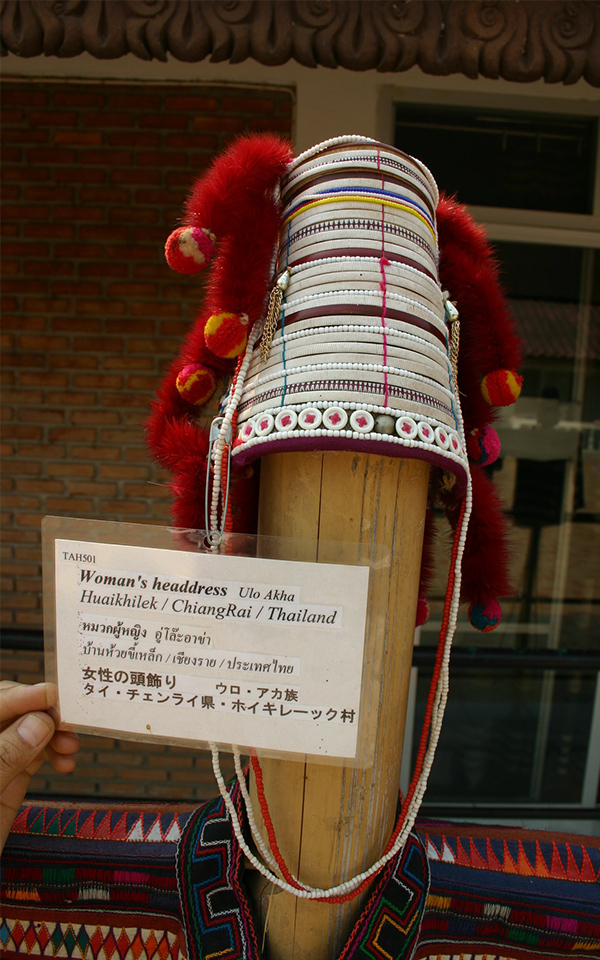 TAH501
Woman's headdress Ulo Akha
Huaikhilek / ChiangRai / Thailand
หมวกผู้หญิง อู่โล๊ะอาข่า
บ้านห้วยขี้เหล็ก / เชียงราย / ประเทศไทย
女性の頭飾り ウロ・アカ族
タイ・チェンライ県・ホイキレーック村